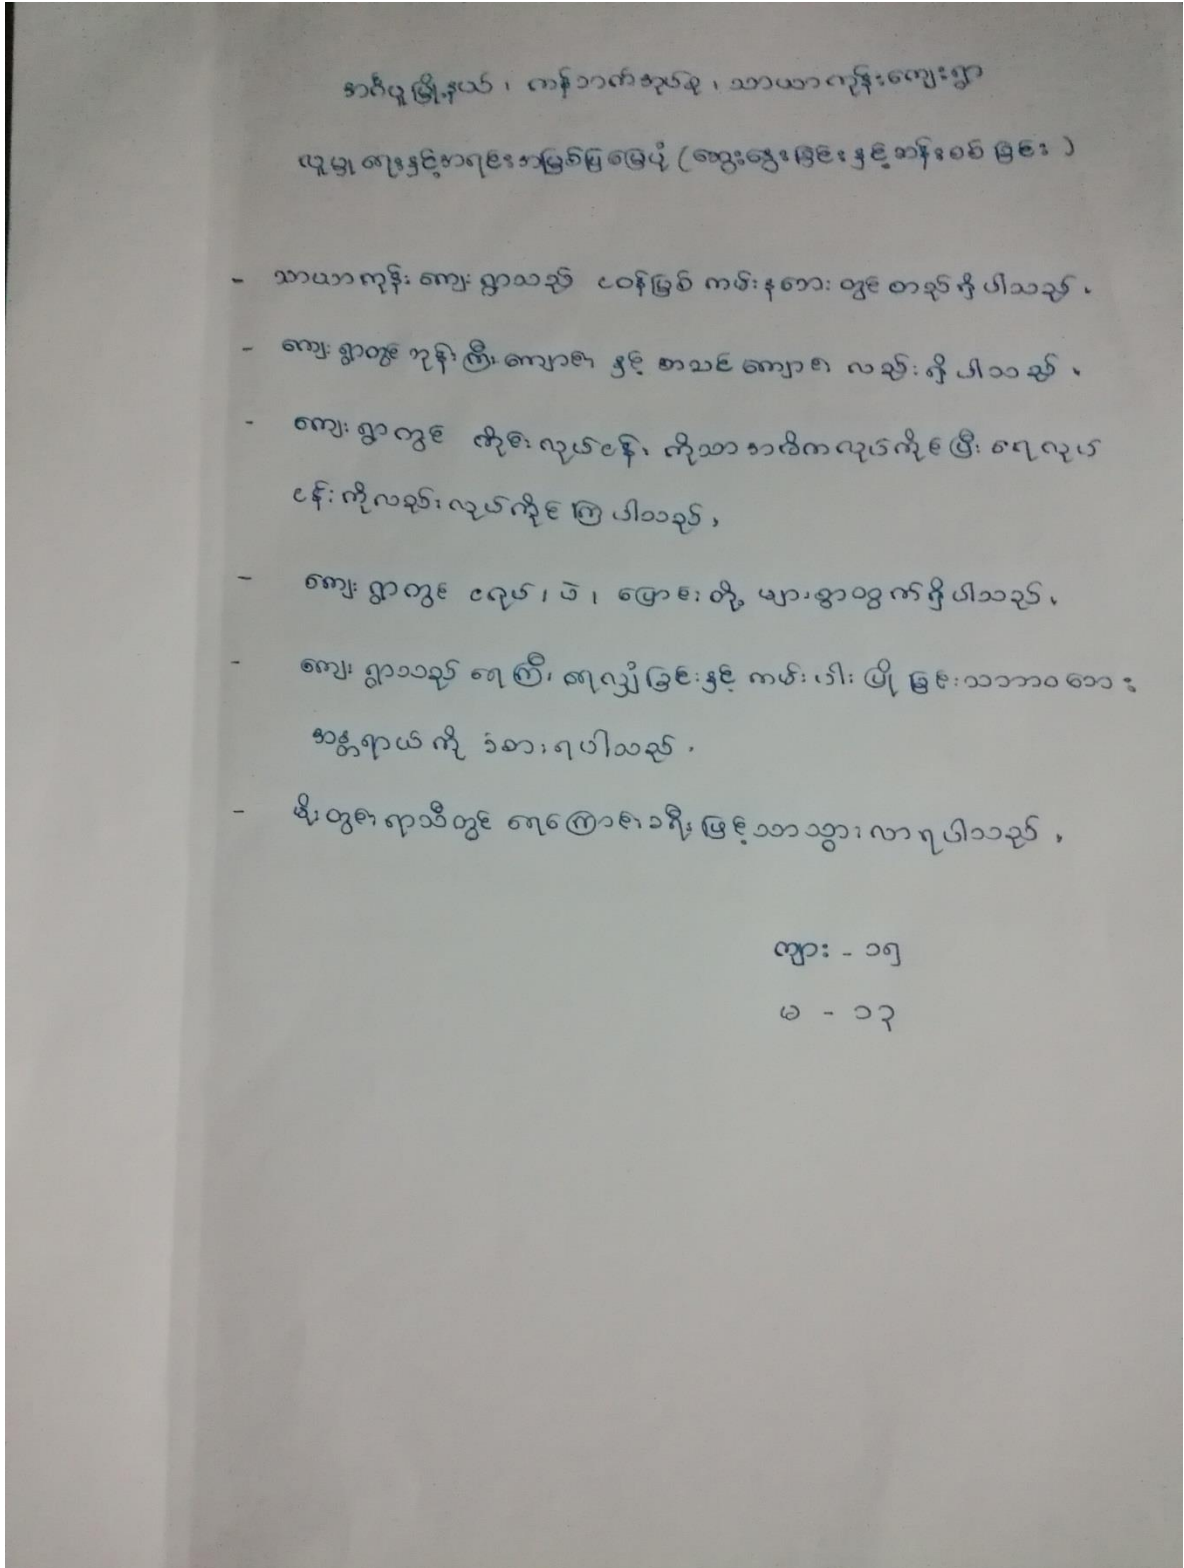 အင်္ဂပူမြို့နယ်၊ ကန်ဘက်အုပ်စု၊ သာယာကုန်းကျေးရွာ
လူမှုရေးနှင့်အရင်းအမြစ်ပြမြေပုံ (ဆွေးနွေးခြင်းနှင့်ဆန်းစစ်ခြင်း)
- သာယာကုန်းကျေးရွာသည် ငဝန်မြစ်ကမ်းနဘေးတွင် တည်ရှိပါသည်.
- ကျေးရွာတွင် ဘုန်းကြီးကျောင်း နှင့် စာသင်ကျောင်း လည်းရှိပါသည်.
- ကျေးရွာတွင် ကိုင်းလုပ်ငန်း ကိုသာအဓိကလုပ်ကိုင်ပြီး ရေလုပ်
ငန်းကိုလည်းလုပ်ကိုင်ကြပါသည်,
- ကျေးရွာတွင် ငရုပ်၊ ပဲ၊ ပြောင်းတို့ များစွာထွက်ရှိပါသည်.
- ကျေးရွာသည် ရေကြီး ရေလျှံခြင်းနှင့် ကမ်းပါးပြိုခြင်းသဘာဝဘေး
အန္တရာယ်ကို ခံစားရပါသည်.
- မိုးတွင်းရာသီတွင် ရေကြောင်းခရီးဖြင့်သာသွားလာရပါသည်,
ကျား - ၁၅
မ - ၁၃